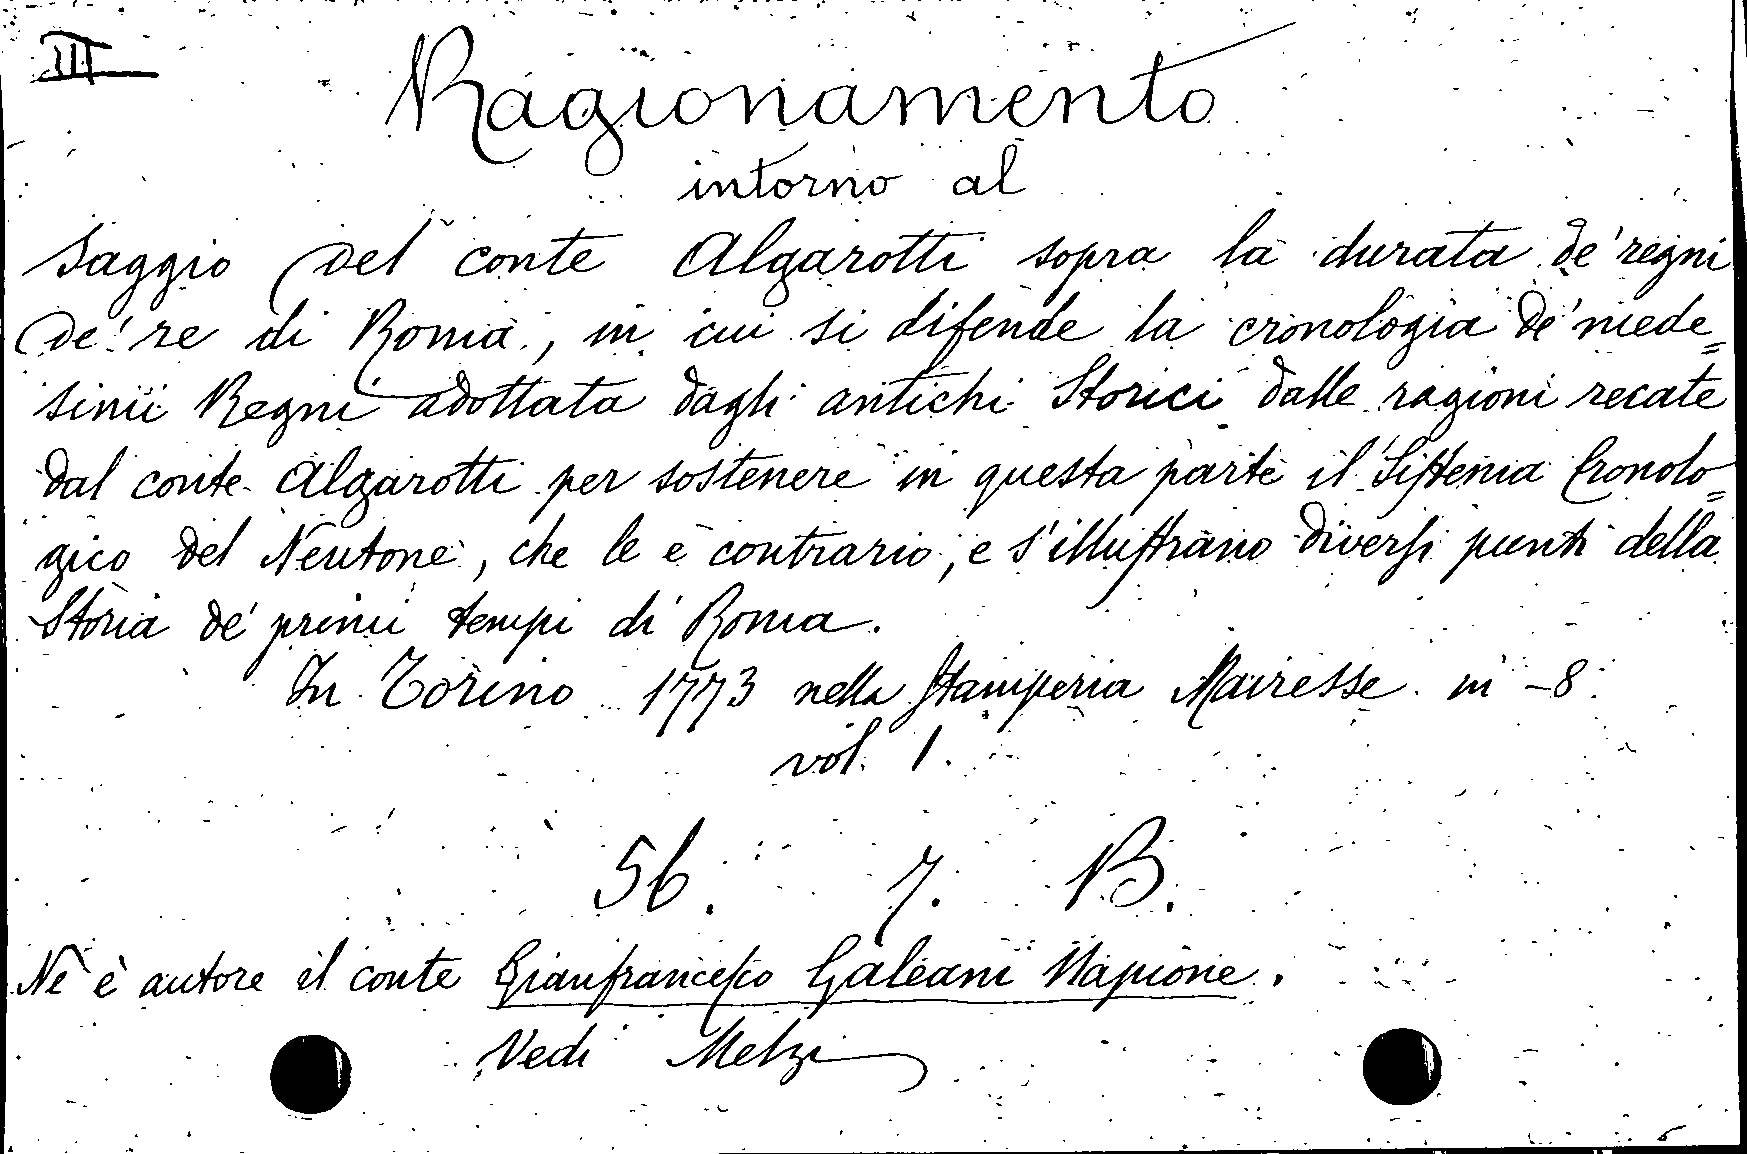 III
Ragionamento
intorno al
saggio del conte Algarotti sopra la durata de' regni
de' re di Roma, in cui si difende la cronologia de' mede=
simi Regni adottata dagli antichi Storici dalle ragioni recate
dal conte Algarotti per sostenere in questa parte il Sistema Cronolo=
gico del Neutone, che le è contrario, e s'illustrano diversi punti della
Storia de' primi tempi di Roma.
In Torino 1773 nella Stamperia Mairesse in -8.
vol. 1.
56. 7. B.
Ne è autore il conte Gianfrancesco Galeani Napione.
Vedi Melzi